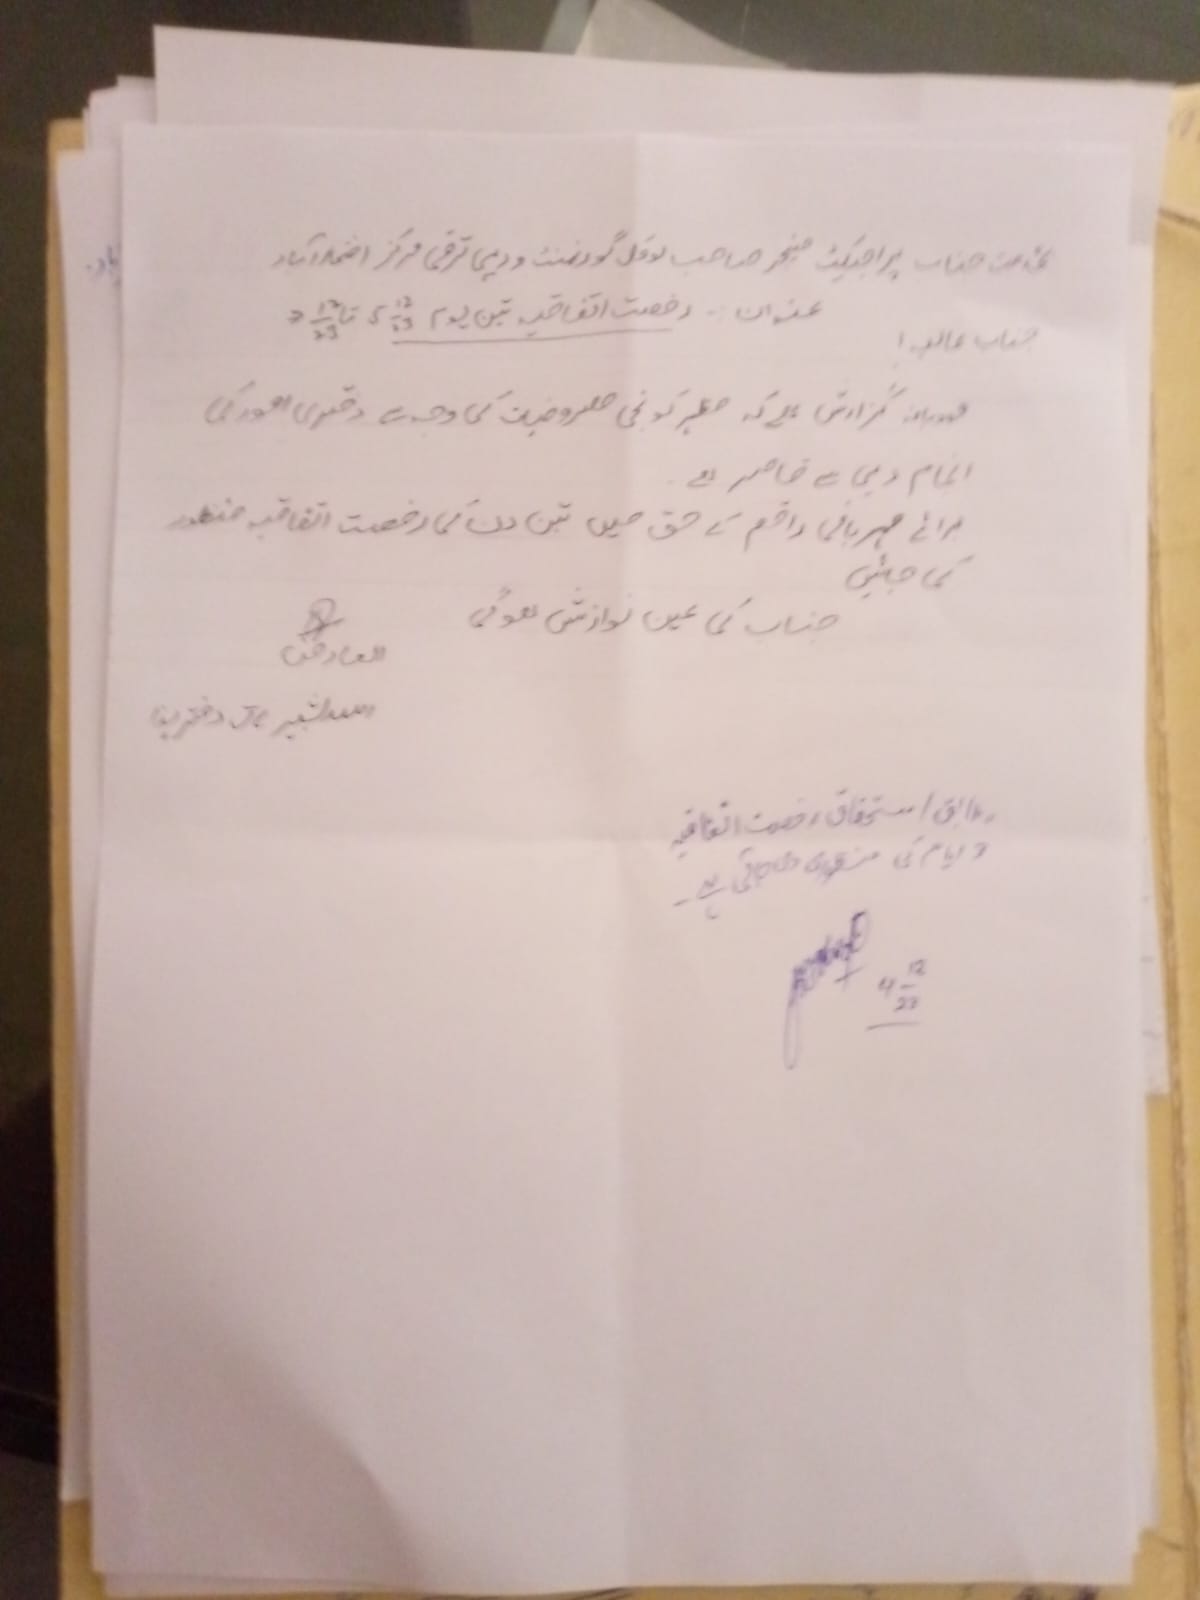 بخدمت جناب پراجیکٹ منیجر صاحب لوکل گورنمنٹ و دیہی ترقی مرکز
عنوان :- رخصت اتفاقیہ تین یوم 5 12/23 تا 7 12/23
جناب عالیہ!
گزارش ہے کہ مظہر کو نجی مصروفیت کی وجہ سے دفتری امور کی
انجام دہی سے قاصر ہے۔
برائے مہربانی راقم کے حق میں تین دن کی رخصت اتفاقیہ منظور
کی جائیں
جناب کی عین نوازش ہوگی
العارض
دفتر ہذا
مطابق استحقاق رخصت اتفاقیہ
3 ایام کی منظوری دی جاتی ہے۔
4 12/23